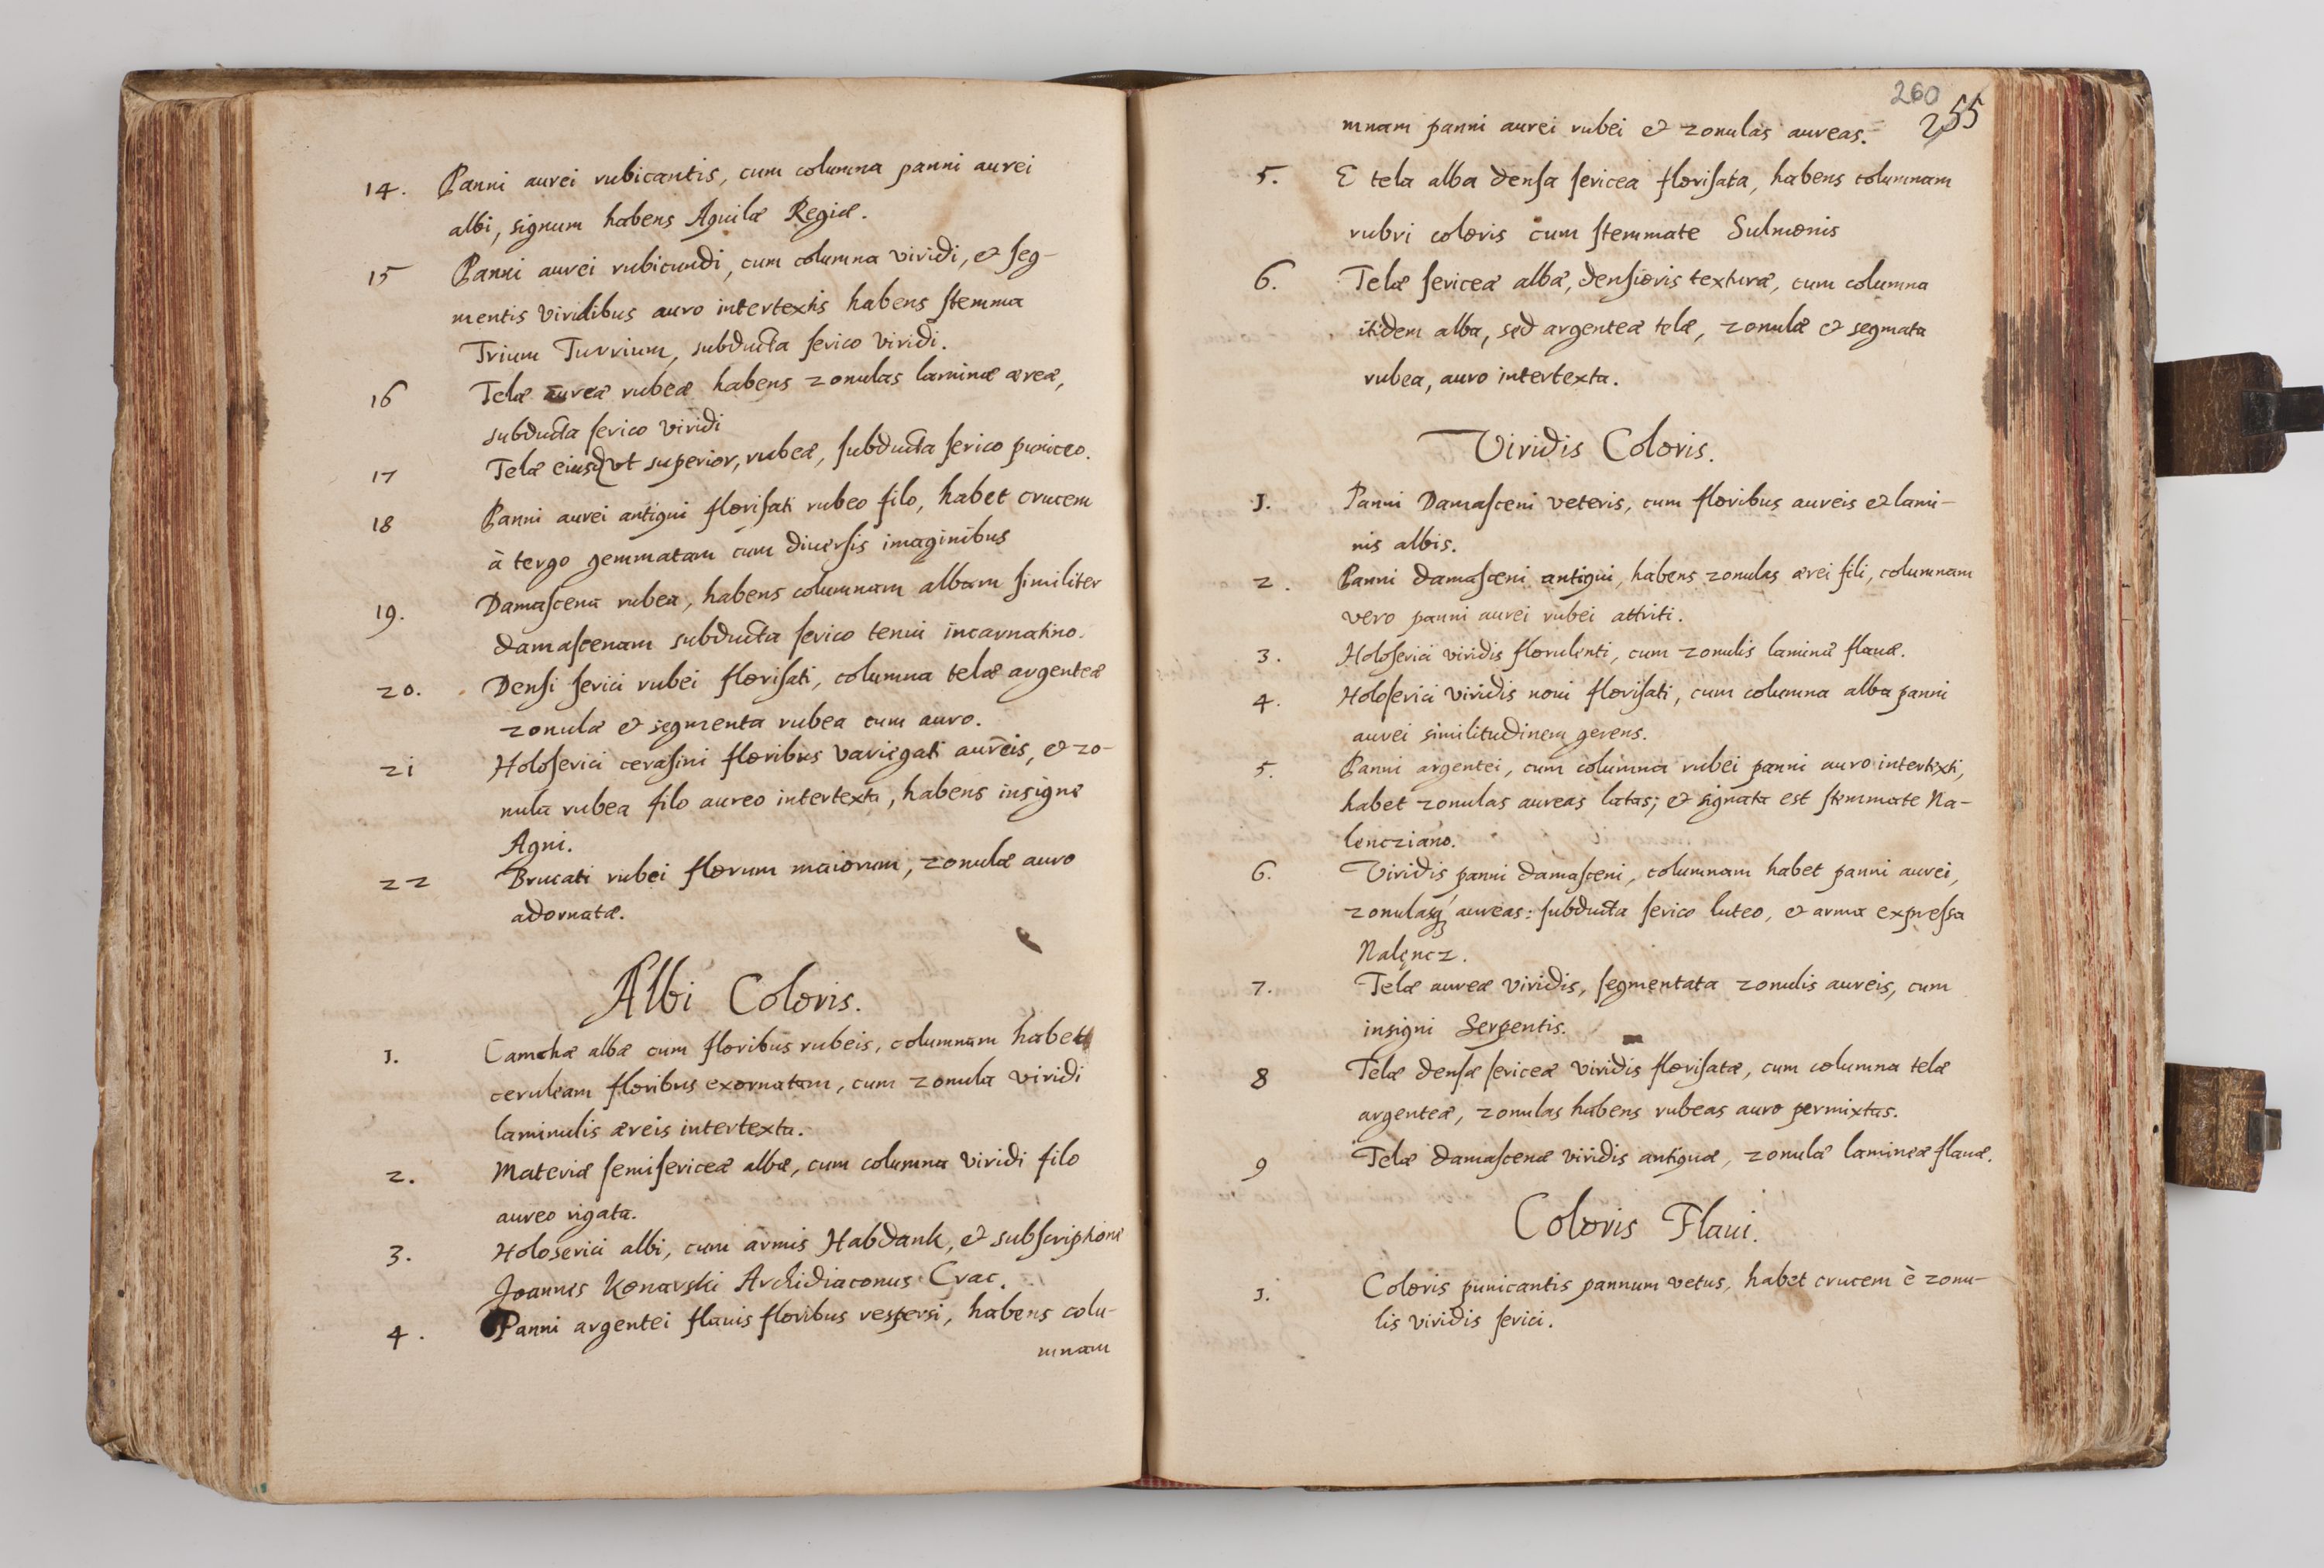 14. Panni aurei rubicantis, cum columna panni aurei
albi, signum habens Aquilæ Regiæ.
15 Panni aurei rubicundi, cum columna viridi, et seg-
mentis viridibus auro intertextis habens stemma
Trium Turrium, subducta serico viridi.
16 Telæ aureæ rubeæ habens zonulas laminæ æreæ,
subducta serico viridi
17 Telæ eiusd vt superior, rubeæ, subducta serico puniceo.
18 Panni aurei antiqui florisati rubeo filo, habet crucem
à tergo gemmatam cum diuersis imaginibus
19. Damascena rubea, habens columnam albam similiter
damascenam subducta serico tenui incarnatino.
20. Densi serici rubei florisati, columna telæ argenteæ
zonulæ et segmenta rubea cum auro.
21 Holoserici cerasini floribus variegati aureis, et zo-
nula rubea filo aureo intertexta, habens insigne
Agni.
22 Brucati rubei florum maiorum, zonulæ auro
adornatæ.
Albi Coloris.
1. Camchæ albæ cum floribus rubeis, columnam habet
ceruleam floribus exornatam, cum zonula viridi
laminulis æreis intertexta.
2. Materiæ semisericeæ albæ, cum columna viridi filo
aureo rigata.
3. Holoserici albi, cum armis Habdank, et subscriptione
Joannes Konarski Archidiaconus Crac.
4. Panni argentei flauis floribus respersi, habens colu-
mnam
260
255
mnam panni aurei rubei et zonulas aureas.
5. E tela alba densa sericea florisata, habens columnam
rubri coloris cum stemmate Sulmonis
6. Telæ sericeæ albæ, densioris texturæ, cum columna
itidem alba, sed argenteæ telæ, zonulæ et segmata
rubea, auro intertexta.
Viridis Coloris.
1. Panni Damasceni veteris, cum floribus aureis et lami-
nis albis.
2. Panni damasceni antiqui, habens zonulas ærei fili, columnam
vero panni aurei rubei attriti.
3. Holoserici viridis florulenti, cum zonulis laminæ flauæ.
4. Holoserici viridis noui florisati, cum columna alba panni
aurei similitudinem gerens.
5. Panni argentei, cum columna rubei panni auro intertexti,
habet zonulas aureas latas; et signata est stemmate Na-
lencziano.
6. Viridis panni damasceni, columnam habet panni aurei,
zonulasq; aureas: subducta serico luteo, et arma expressa
Nalęncz.
7. Telæ aureæ viridis, segmentata zonulis aureis, cum
insigni Serpentis.
8 Telæ densæ sericeæ viridis florisatæ, cum columna telæ
argenteæ, zonulas habens rubeas auro permixtas.
9 Telæ damascenæ viridis antiquæ, zonulæ lamineæ flauæ.
Coloris Flaui.
1. Coloris punicantis pannum vetus, habet crucem è zonu-
lis viridis serici.